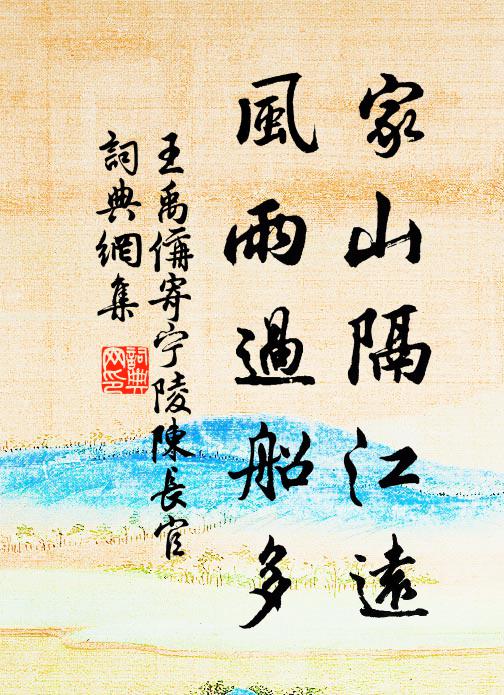 家山隔江遠
風雨過船多
王禹偁寄宁陵陳長官
詞典網集
詞典网印